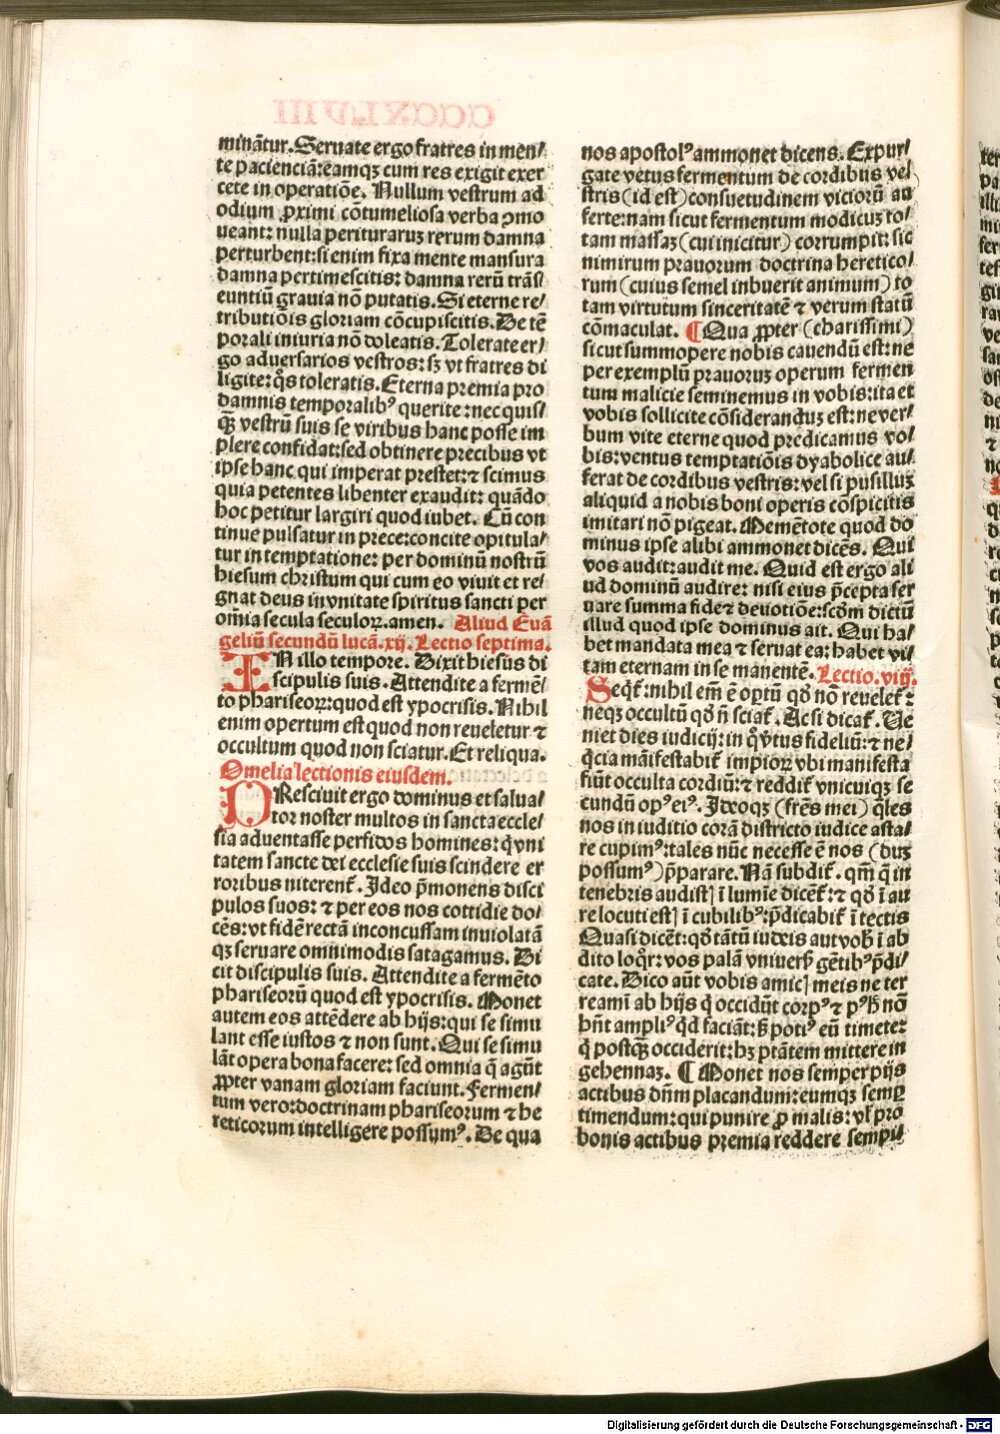 minātur. Seruate ergo fratres in men/
te pacienciā: eamqꝫ cum res exigit exer
cete in operatiōe. Nullum vestrum ad
odium ꝓximi cōtumeliosa verba ꝯmo
ueant: nulla perituraruꝫ rerum damna
perturbent: si enim fixa mente mansura
damna pertimescitis: damna rerū trās/
euntiū grauia nō putatis. Si eterne re/
tributiōis gloriam cōcupiscitis. De tē
porali iniuria nō doleatis. Tolerate er/
go aduersarios vestros: sꝫ vt fratres di
ligite: q̄s toleratis. Eterna premia pro
damnis temporalibꝰ querite: nec quis/
qꝫ vestrū suis se viribus hanc posse im
plere confidat: sed obtinere precibus vt
ipse hanc qui imperat prestet: ⁊ scimus
quia petentes libenter exaudit: quādo
hoc petitur largiri quod iubet. Cū con
tinue pulsatur in prece: concite opitula/
tur in temptatione: per dominū nostrū
hiesum christum qui cum eo viuit et re/
gnat deus in vnitate spiritus sancti per
om̄ia secula seculoꝝ. amen. Aliud Euā
geliū secundū lucā. xij. Lectio septima.
IN illo tempore. Dixit hiesus di
scipulis suis. Attendite a fermē/
to phariseoꝝ: quod est ypocrisis. Nihil
enim opertum est quod non reueletur ⁊
occultum quod non sciatur. Et reliqua.
Omelia lectionis eiusdem.
PResciuit ergo dominus et salua/
tor noster multos in sancta eccle/
sia aduentasse perfidos homines: q̇ vni
tatem sancte dei ecclesie suis scindere er
roribus niterent᷑. Ideo p̄monens disci
pulos suos: ⁊ per eos nos cottidie do/
cēs: vt fidē rectā inconcussam inuiolatā
qꝫ seruare omnimodis satagamus. Di
cit discipulis suis. Attendite a fermēto
phariseorū quod est ypocrisis. Monet
autem eos attēdere ab hijs: qui se simu
lant esse iustos ⁊ non sunt. Qui se simu
lāt opera bona facere: sed omnia q̄ agūt
ꝓpter vanam gloriam faciunt. Fermen/
tum vero: doctrinam phariseorum ⁊ he
reticorum intelligere possumꝰ. De qua
nos apostolꝰ ammonet dicens. Expur/
gate vetus fermentum de cordibus ve/
stris (id est) consuetudinem viciorū au
ferte: nam sicut fermentum modicuꝫ to/
tam massaꝫ (cui inicitur) corrumpit: sic
nimirum prauorum doctrina heretico/
rum (cuius semel inbuerit animum) to
tam virtutum sinceritatē ⁊ verum statū
cōmaculat. ¶ Qua ꝓpter (charissimi)
sicut summopere nobis cauendū est: ne
per exemplū prauoruꝫ operum fermen
tum malicie seminemus in vobis: ita et
vobis sollicite cōsideranduꝫ est: ne ver/
bum vite eterne quod predicamus vo/
bis: ventus temptatiōis dyabolice au/
ferat de cordibus vestris: vel si pusilluꝫ
aliquid a nobis boni operis cōspicitis
imitari nō pigeat. Memētote quod do
minus ipse alibi ammonet dicēs. Qui
vos audit: audit me. Quid est ergo ali
ud dominū audire: nisi eius p̄cepta ser
uare summa fide⁊ deuotiōe: scdm̄ dictū
illud quod ipse dominus ait. Qui ha/
bet mandata mea ⁊ seruat ea: habet vi/
tam eternam in se manentē. Lectio. viij.
Seqt᷑: nihil em̄ ē optū qđ nō reuelet᷑:
neqꝫ occultū qđ n̄ sciat᷑. Ac si dicat᷑. Ve
niet dies iudicij: in q̇ v̇tus fideliū: ⁊ ne/
q̇cia māifestabit᷑ impioꝝ vbi manifesta
fiūt occulta cordiū: ⁊ reddit᷑ vnicuiqꝫ se
cundū opꝰ eiꝰ. Ideoqꝫ (frēs mei) q̄les
nos in iuditio corā districto iudice asta/
re cupimꝰ: tales nūc necesse ē nos (duꝫ
possumꝰ) p̄parare. Nā subdit᷑. qm̄ q̄ in
tenebris audistꝭ ī lumīe dicēt᷑: ⁊ qđ ī au
re locuti estꝭ ī cubilibꝰ: p̄dicabit᷑ ī tectis
Quasi dicēt: qđ tātū iudeis aut vob̄ ī ab
dito loq̄r: vos palā vniuersꝭ gētibꝰ p̄di/
cate. Dico aūt vobis amicꝭ meis ne ter
reamī ab hijs q̇ occidūt corpꝰ ⁊ pꝰ h̄ nō
hn̄t ampliꝰ qđ faciāt: sꝫ potiꝰ eū timete:
q̇ postqꝫ occiderit: hꝫ ptātem mittere in
gehennaꝫ. ¶ Monet nos semper pijs
actibus dn̄m placandum: eumqꝫ semꝑ
timendum: qui punire ꝓ malis: vl̓ pro
bonis actibus premia reddere sempi/
Digitalisierung gefördert durch die Deutsche Forschungsgemeinschaft - DFG